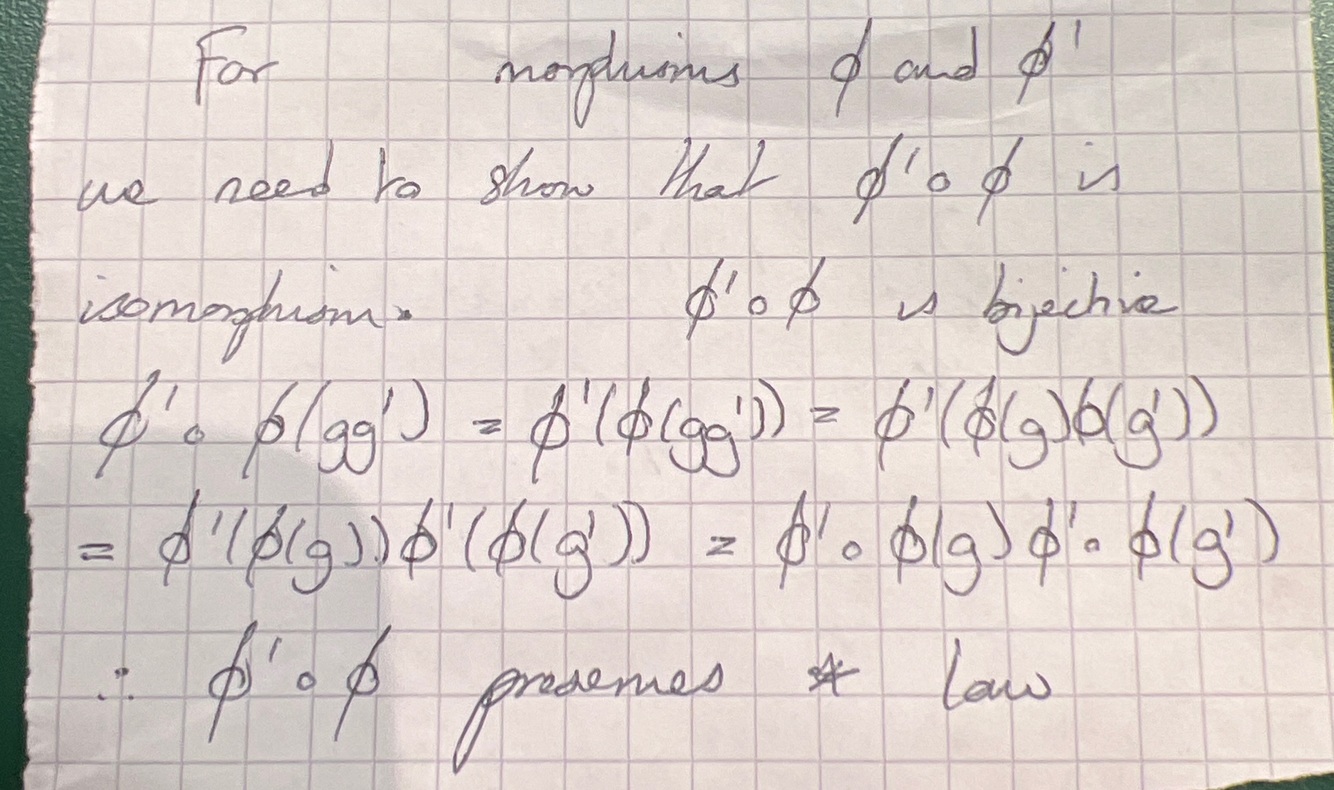 For morphisms ϕ and ϕ'
we need to show that ϕ'∘ϕ is
isomorphism. ϕ'∘ϕ is bijective
ϕ'∘ϕ(gg') = ϕ'(ϕ(gg')) = ϕ'(ϕ(g)ϕ(g'))
= ϕ'(ϕ(g))ϕ'(ϕ(g')) = ϕ'∘ϕ(g)ϕ'∘ϕ(g')
∴ ϕ'∘ϕ preserves * law